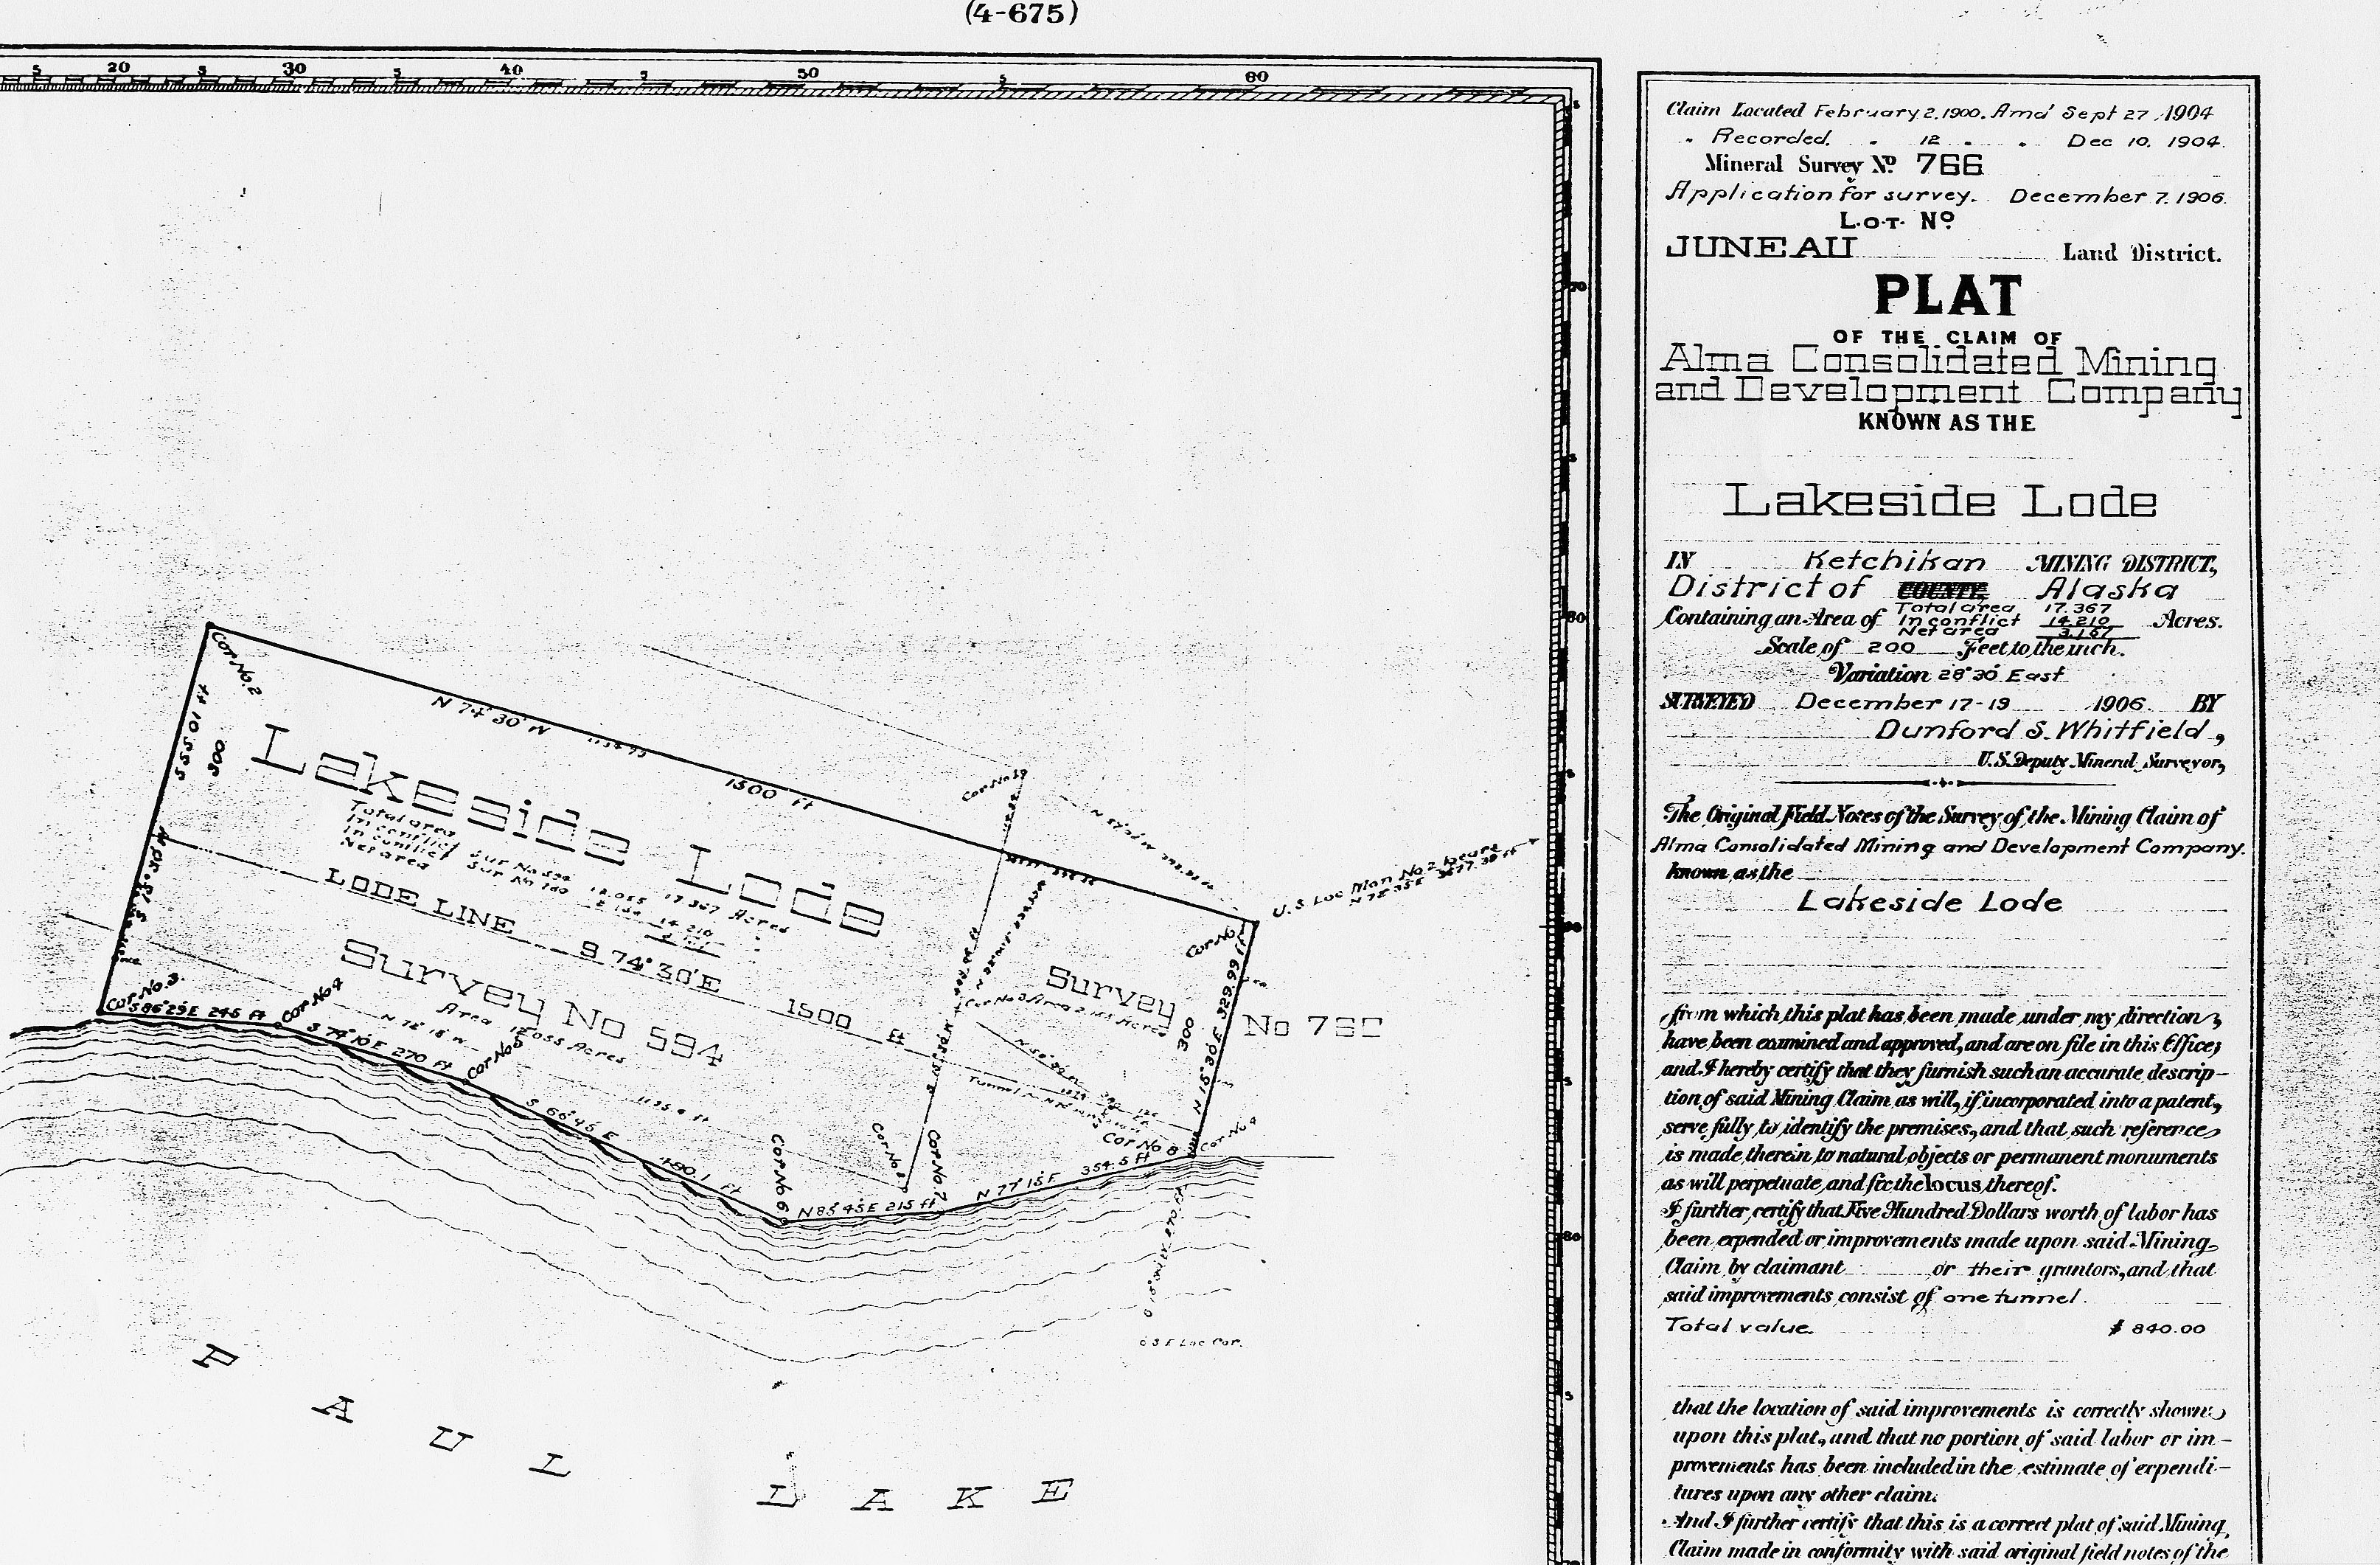 (4-675)
5 20 5 30 5 40 5 50 5 60
5
70
5
80
5
90
5
80
5
Cor No. 2
555.01 ft
300
N 74° 30' W
1500 ft
Lakeside Lode
Total area 17.367 Acres
In conflict Sur No 594 12.055
In conflict Sur No
Net area
14.210
LODE LINE S 74° 30' E 1500 ft
Survey No 594
Area 12.055 Acres
N 72° 18' W
Cor No. 3
S 86° 29' E 245 ft
Cor No 4
S 74° 10' E 270 ft
Cor No 5
S 66° 45' E
480.1 ft
Cor No 6
N 85° 45' E 215 ft
Cor No 1
Cor No. 7
N 77° 15' E
354.5 ft
Cor No 8
Cor No 4
Cor No
U.S. Loc Mon No 2 bears
N 15° 30' E 329.99 ft
300
Survey
Cor No 3
Tunnel
Loc Cor.
PAUL LAKE
Claim Located February 2, 1900. Amd Sept 27, 1904
" Recorded. " 12 " " Dec 10, 1904.
Mineral Survey No. 766
Application for survey. December 7, 1906.
LOT No.
JUNEAU Land District.
PLAT
OF THE CLAIM OF
Alma Consolidated Mining
and Development Company
KNOWN AS THE
Lakeside Lode
IN Ketchikan MINING DISTRICT,
District of COUNTY, Alaska
Total area 17.367
Containing an Area of In conflict 14.210 Acres.
Net area 3.157
Scale of 200 Feet to the inch.
Variation 28° 30' East
SURVEYED December 17-19 1906 BY
Dunford S. Whitfield,
U.S. Deputy Mineral Surveyor,
The Original Field Notes of the Survey of the Mining Claim of
Alma Consolidated Mining and Development Company.
known as the
Lakeside Lode
from which this plat has been made under my direction,
have been examined and approved, and are on file in this Office;
and I hereby certify that they furnish such an accurate descrip-
tion of said Mining Claim as will, if incorporated into a patent,
serve fully to identify the premises, and that such reference
is made therein to natural objects or permanent monuments
as will perpetuate and fix the locus thereof.
I further certify that Five Hundred Dollars worth of labor has
been expended or improvements made upon said Mining
Claim by claimant or their grantors, and that
said improvements consist of one tunnel.
Total value $ 840.00
that the location of said improvements is correctly shown
upon this plat, and that no portion of said labor or im-
provements has been included in the estimate of expendi-
tures upon any other claim.
And I further certify that this is a correct plat of said Mining
Claim made in conformity with said original field notes of the